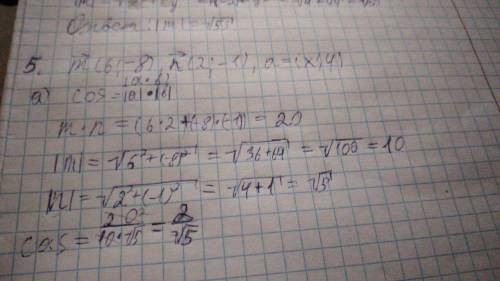 Ответ: |m| = √5
5. m⃗(6;-8), n⃗(2;-1), a=(x;4)
а) cos = |a·b| / |a|·|b|
m·n = (6·2+(-8)·(-1)) = 20
|m| = √6²+(-8)² = √36+64 = √100 = 10
|n| = √2²+(-1)² = √4+1 = √5
cos = 20 / 10·√5 = 2 / √5